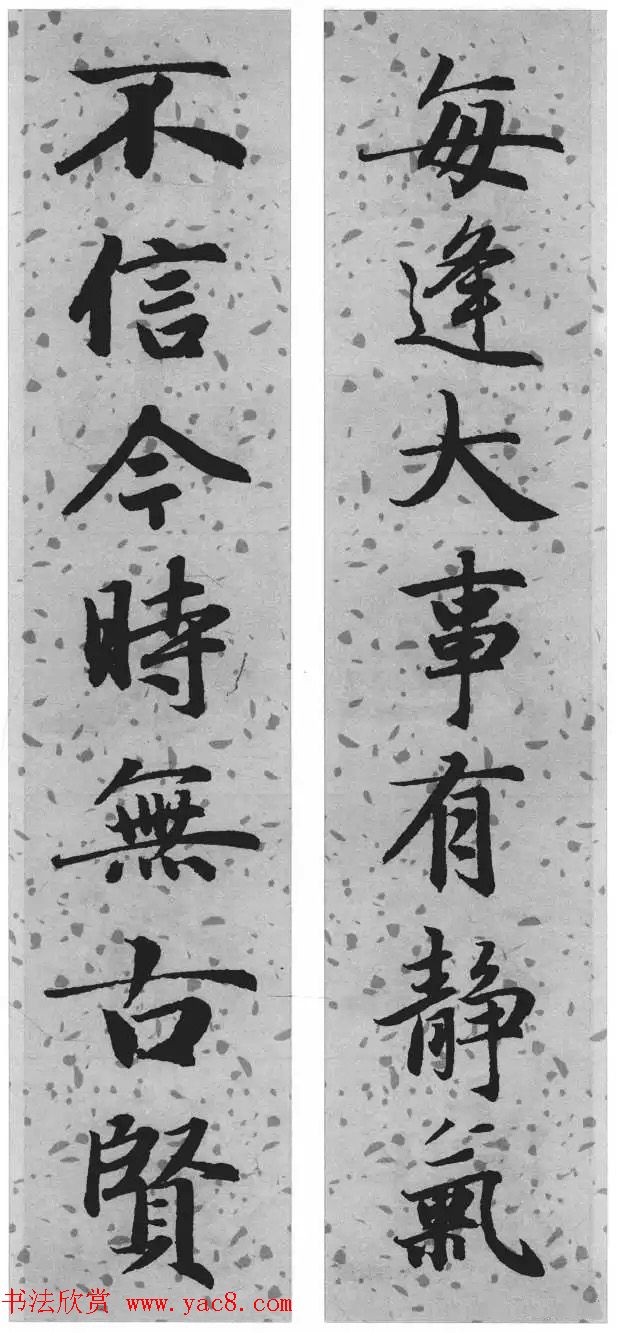 每逢大事有静氣
不信今時無古賢
书法欣赏 www.yac8.com